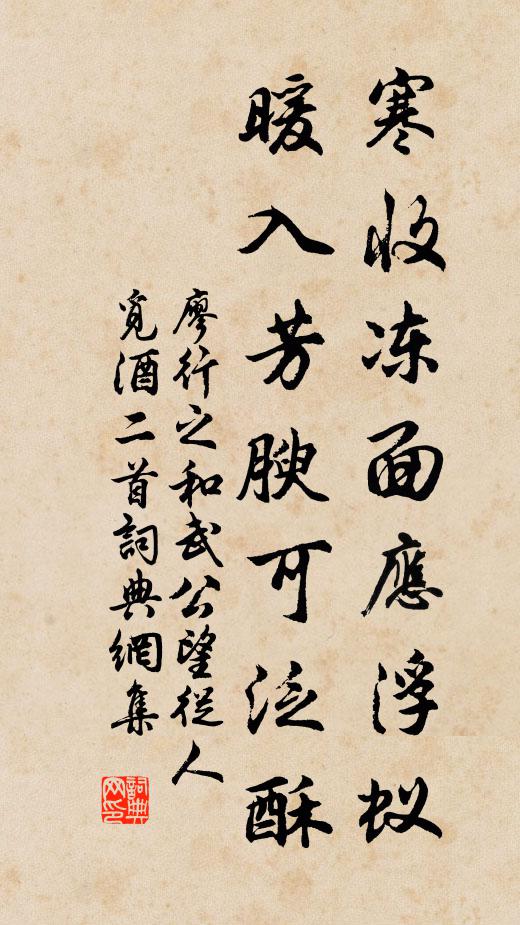 寒收冻面應浮蚁
暖入芳腴可泛酥
廖行之和武公望從人
覓酒二首詞典網集
詞典网印